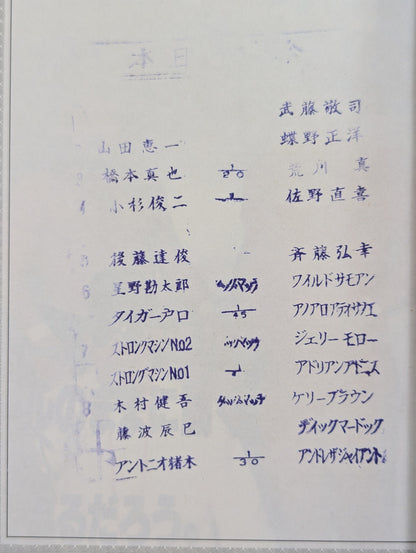 武藤敬司
蝶野正洋
山田恵一
3 橋本真也 荒川 真
4 小杉俊二 佐野直喜
5 後藤達俊 斉藤弘幸
6 星野勘太郎 タッグマッチ ワイルドサモアン
タイガー戸口 1/45 アノアロアティサノエ
7 ストロングマシンNo.2 タッグマッチ ジェリーモロー
ストロングマシンNo.1 アドリアンアドニス
8 木村健吾 タッグマッチ ケリーブラウン
藤波辰巳 ディックマードック
アントニオ猪木 1/30 アンドレザジャイアント